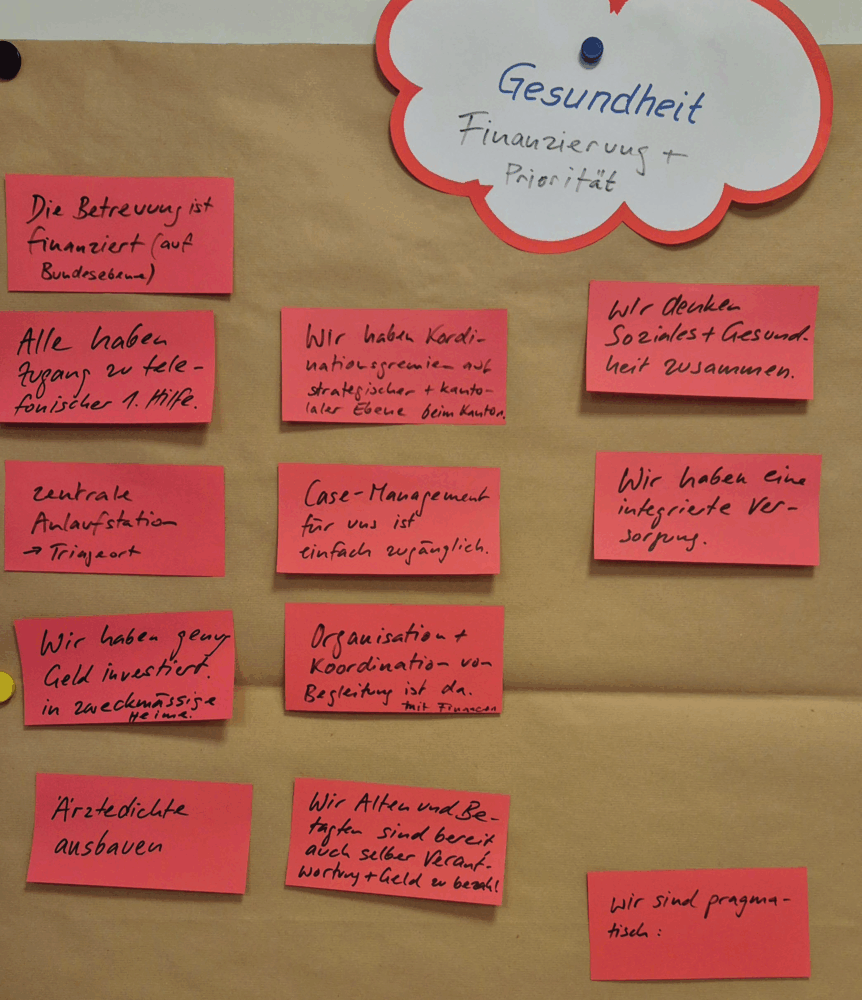 Gesundheit
Finanzierung +
Priorität
Die Betreuung ist
finanziert (auf
Bundesebene)
Alle haben
Zugang zu tele-
fonischer 1. Hilfe.
zentrale
Anlaufstation
→ Triageort
Wir haben genug
Geld investiert.
in zweckmässige
Heime.
Ärztedichte
ausbauen
Wir haben Kordi-
nationsgremien auf
strategischer + kanto-
naler Ebene beim Kanton.
Case-Management
für uns ist
einfach zugänglich.
Organisation +
Koordination von
Begleitung ist da.
mit Finanzen
Wir Alten und Be-
tagten sind bereit
auch selber Verant-
wortung + Geld zu bezahl
Wir denken
Soziales + Gesund-
heit zusammen.
Wir haben eine
integrierte Ver-
sorgung.
Wir sind pragma-
tisch: